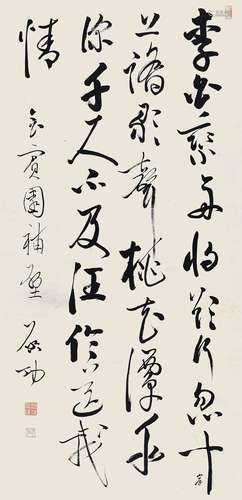 李白乘舟將欲行忽聞岸
上踏歌聲桃花潭水
深千尺不及汪倫送我
情
賓園補壁
啟功